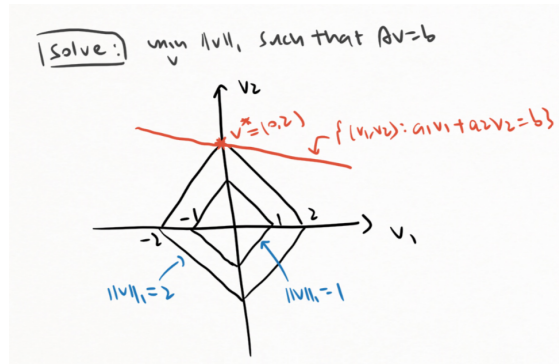 Solve: min ||v||₁ such that Av=b
v
v2
v*=(0,2)
{(v₁,v₂): a₁v₁+a2v2=b}
-2 -1 1 2
v₁
||v||₁=2 ||v||₁=1